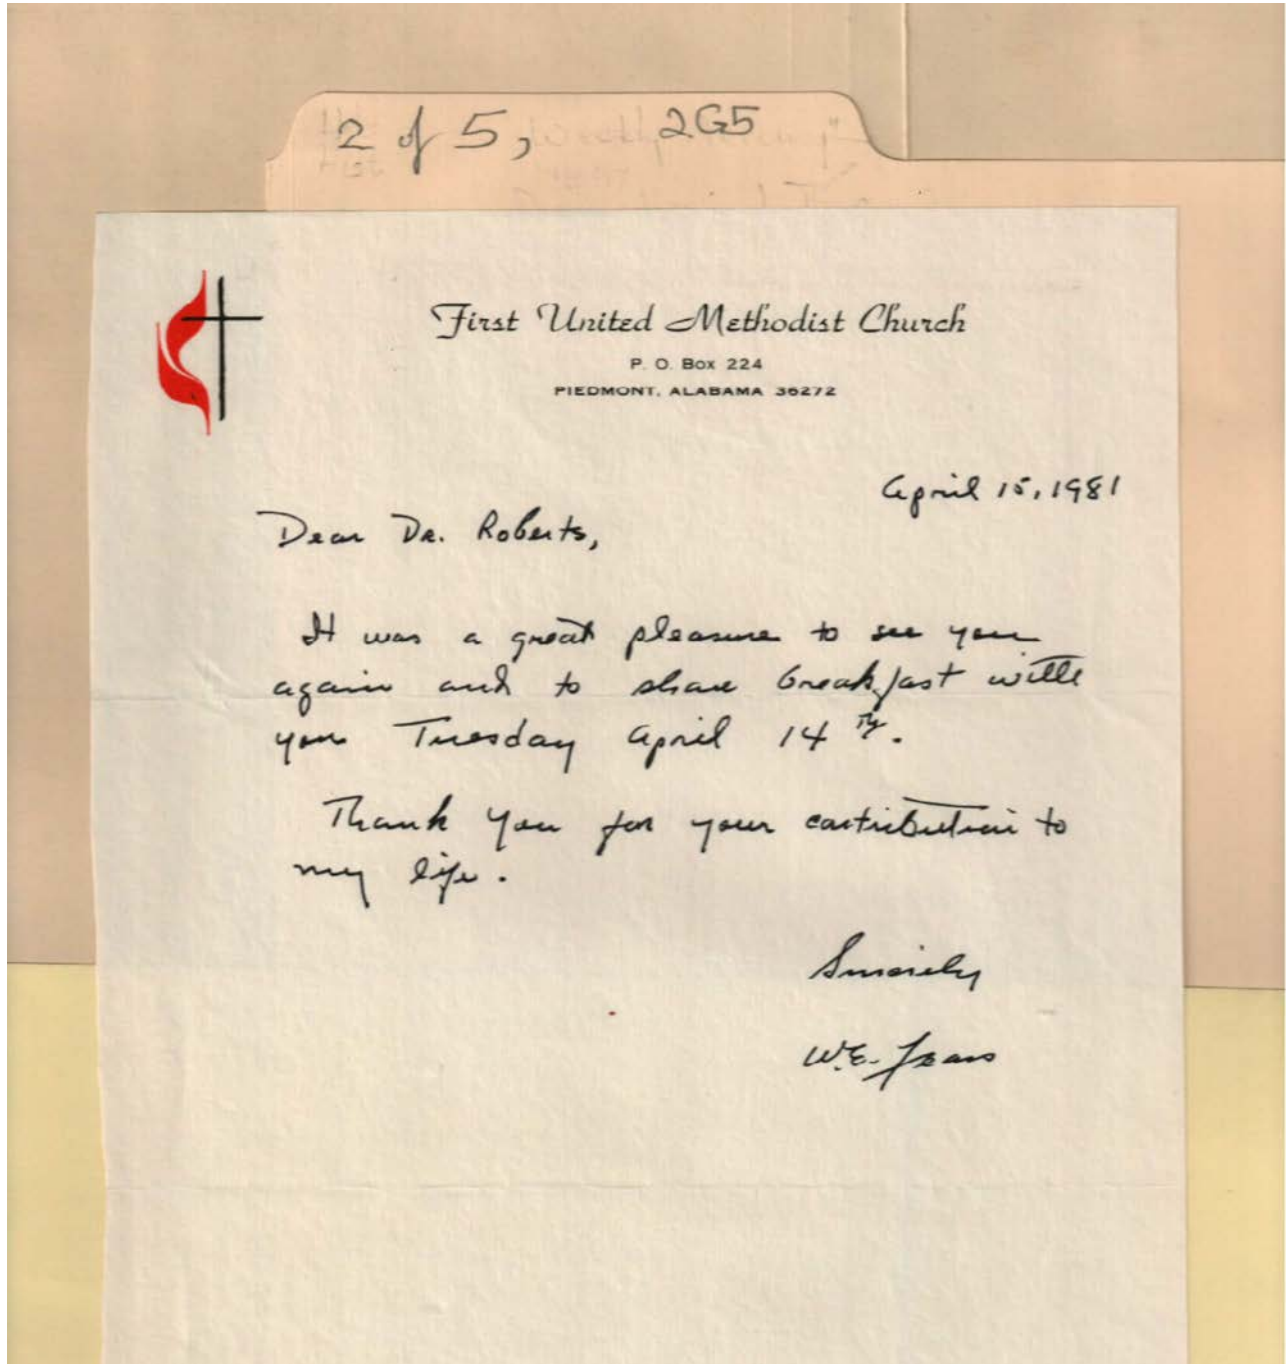 2 of 5, 2G5
First United Methodist Church
P. O. Box 224
PIEDMONT, ALABAMA 36272
April 15, 1981
Dear Dr. Roberts,
It was a great pleasure to see you
again and to share breakfast with
you Tuesday April 14th.
Thank you for your contribution to
my life.
Sincerely
W.E.